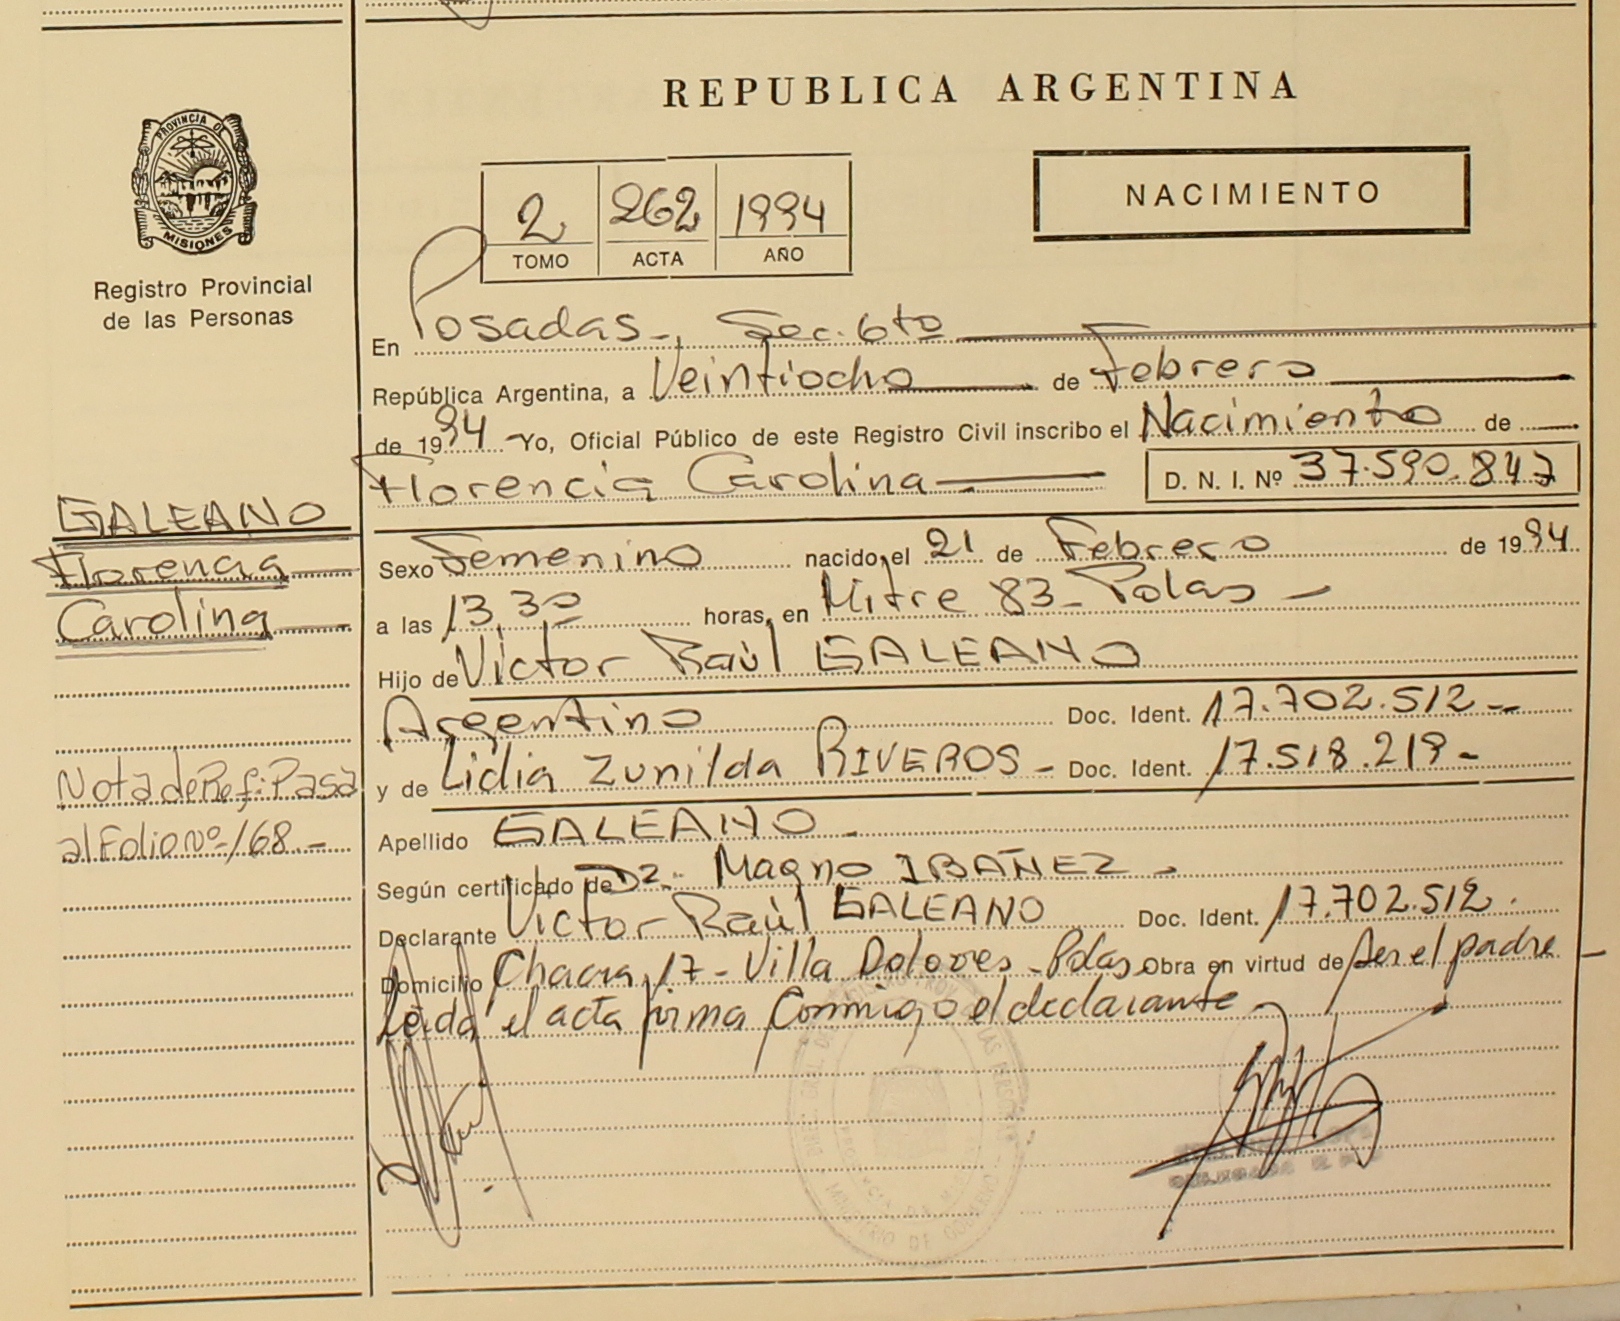 REPUBLICA ARGENTINA
PROVINCIA DE
MISIONES
Registro Provincial
de las Personas
2 262 1994
TOMO ACTA AÑO
NACIMIENTO
En Posadas., Sec. 6to
República Argentina, a Veintiocho de Febrero
de 1994 Yo, Oficial Público de este Registro Civil inscribo el Nacimiento de
Florencia Carolina D. N. I. Nº 37.590.847
GALEANO
Florencia
Carolina
Sexo Femenino nacido el 21 de Febrero de 1994
a las 13,30 horas, en Mitre 83 - Pdas -
Hijo de Victor Raúl GALEANO
Argentino Doc. Ident. 17.702.512 -
y de Lidia Zunilda RIVEROS - Doc. Ident. 17.518.219 -
Nota de Ref: Pasa
al Folio nº 168.-
Apellido GALEANO -
Según certificado de Dr. Magno IBAÑEZ -
Declarante Victor Raúl GALEANO Doc. Ident. 17.702.512.
Domicilio Chacra 17 - Villa Dolores - Pdas. Obra en virtud de ser el padre -
Leída el acta firma conmigo el declarante -